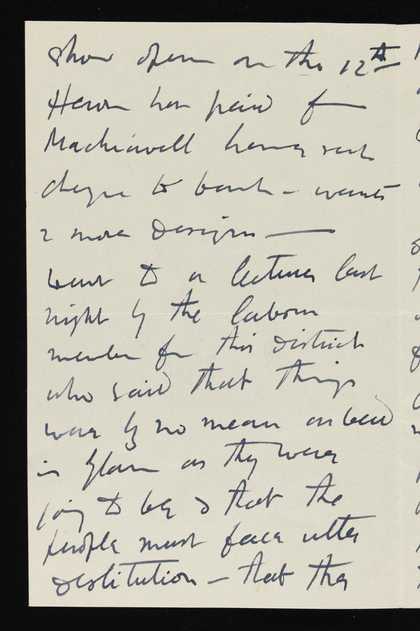 show opens on the 12th
Heron has paid for
Machiavelli having sent
cheque to bank – wants
2 more designs —
Went to a lecture last
night by the labour
member for this district
who said that things
were by no means as bad
in Spain as they were
going to be & that the
people must face utter
destitution – that the